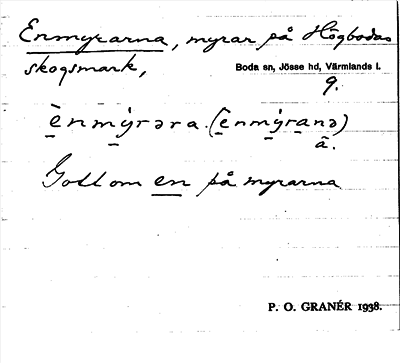 Enmyrarna, myrar på Högbodas
skogsmark,
Boda sn, Jösse hd, Värmlands l.
9.
ènmýrəra. (ènmýranə)
ã.
Gott om en på myrarna
P. O. GRANÉR 1938.